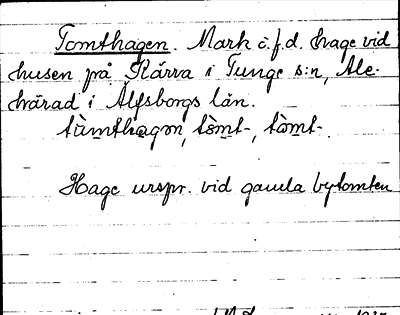 Tomthagen. Mark o.f.d. hage vid
husen på Skårra i Tunge s:n, Ale-
härad i Älfsborgs län.
tùmthagon, tòmt-, tòmt-.
Hage urspr. vid gamla bytomten